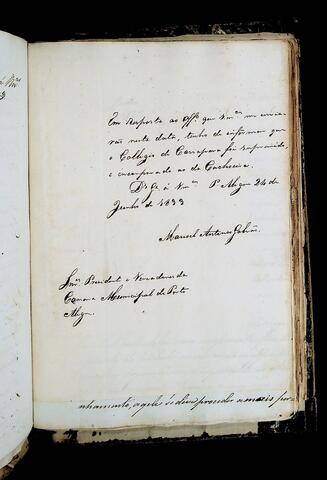 Em resposta ao Off.º que Vm.ces me envia
rão nesta data, tenho de informar que
o Collegio de Carrapara foi suprimido,
e encorporado ao da Cachoeira.
D.s G.e a Vm.ces P. Alegre 24 de
Junho de 1833
Manoel Antonio
Snr.es Presidente e Vereadores da
Camara Municipal de Porto
Alegre.
nhamento, aqele se deve proceder a mais por